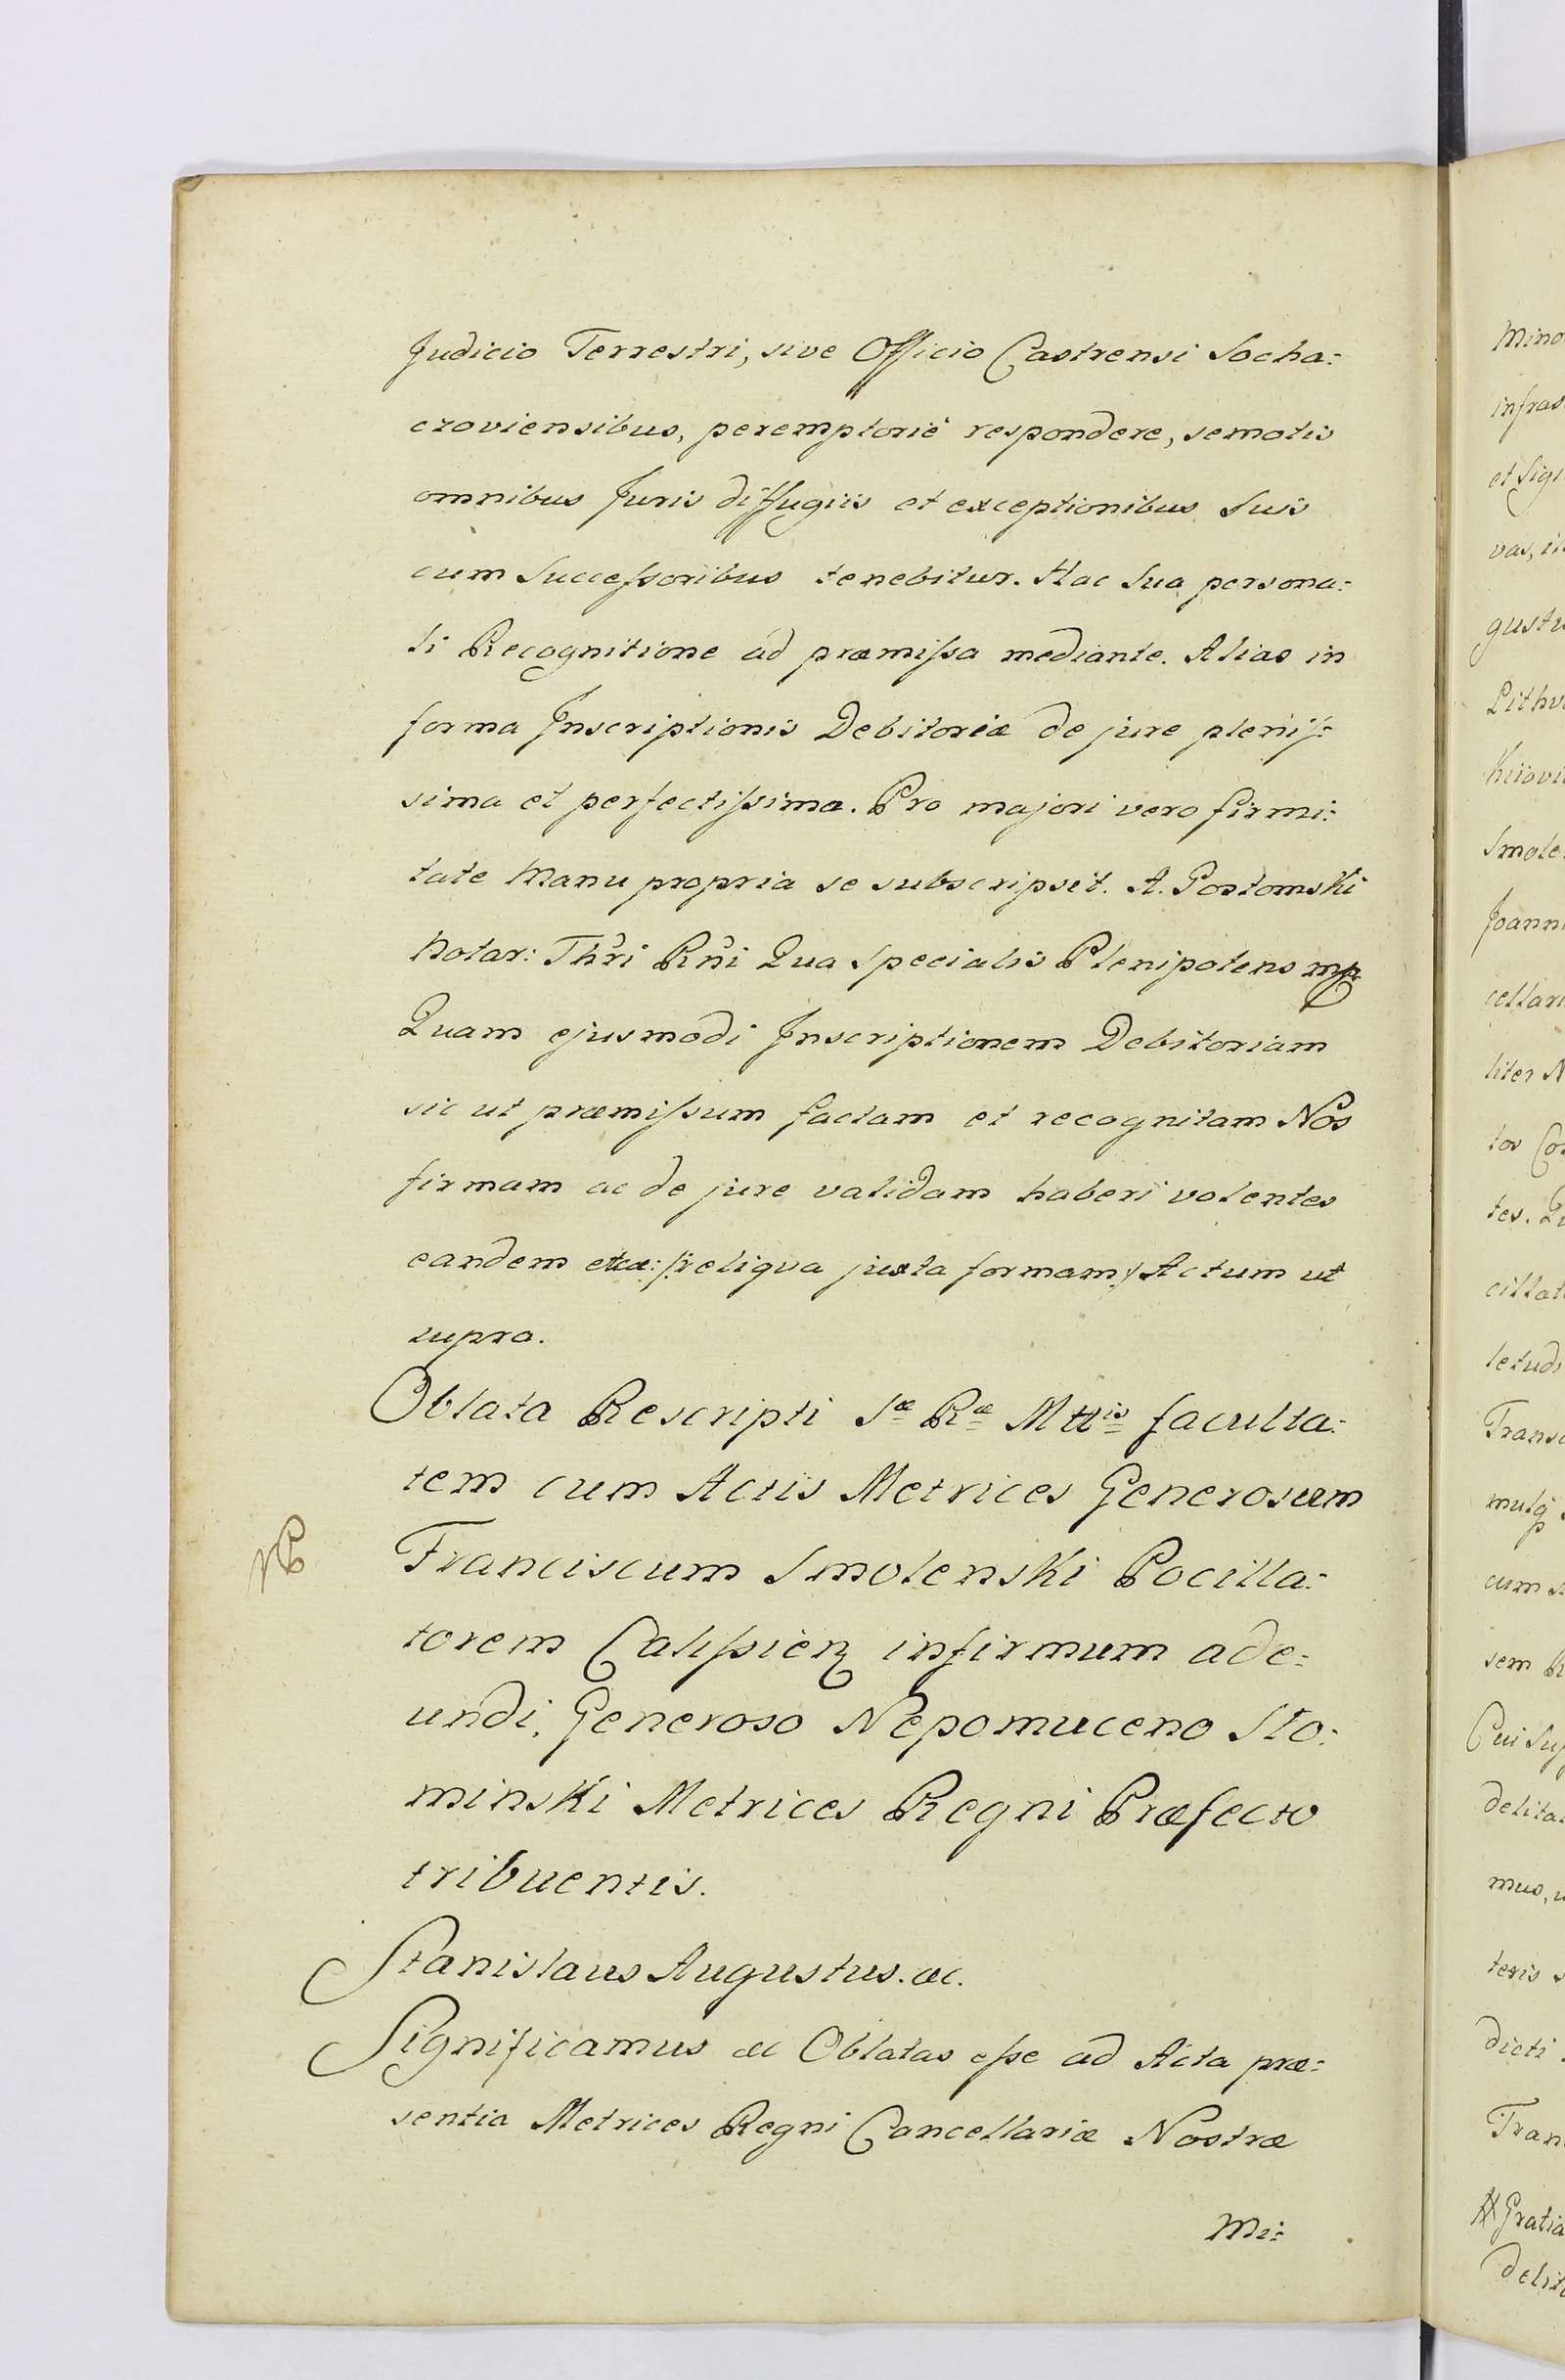 Judicio Terrestri, sive Officio Castrensi Socha:
czoviensibus, peremptorie respondere, semotis
omnibus Juris diffugiis et exceptionibus Suis
cum Succeſsoribus tenebitur. Hac Sua persona:
li Recognitione ad præmiſsa mediante. Alias in
forma Inscriptionis Debitoriæ de jure pleniſ:
sima et perfectiſsima. Pro majori vero firmi:
tate Manu propria se subscripsit. A. Postomski
Notar: Thri Rni Qua Specialis Plenipotens mp
Quam ejusmodi Inscriptionem Debitoriam
sic ut præmiſsum factam et recognitam Nos
firmam ac de jure validam haberi volentes
eandem etcæ: /:reliqva juxta formam:/ Actum ut
supra.
Oblata Rescripti Sæ Ræ Mttis faculta:
tem cum Actis Metrices Generosum
Franciscum Smolenski Pocilla:
torem Caliſsien infirmum ade:
undi, Generoso Nepomuceno Sło:
minski Metrices Regni Præfecto
tribuentis.
Stanislaus Augustus. &c.
Significamus &c Oblatas eſse ad Acta præ:
sentia Metrices Regni Cancellariæ Nostræ
Mi:
Mino
infras
et Sigi
vas,
gustu
Lithv
Kiiovi
Smole
Joann
cellari
liter N
tos Co
tes.
cillat
letudi
Transc
musq
cum
sem R
Cui Suf
delita
mus,
teris
dicti
Tran
Gratia
delit